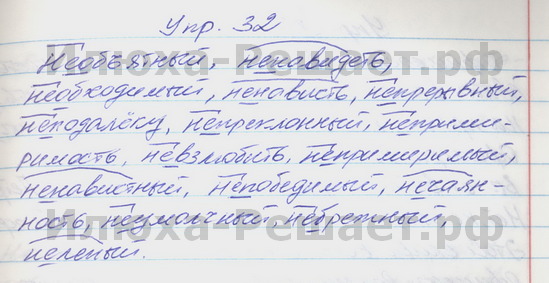 Упр. 32
Необъятный, ненавидеть,
необходимый, ненависть, непрерывный,
неподалёку, непреклонный, неприми-
римость, невзлюбить, непримиримый,
ненавистный, непобедимый, нечаян-
ность, неумолчный, небрежный,
нелепый.
Илюха-Решает.рф
Илюха-Решает.рф